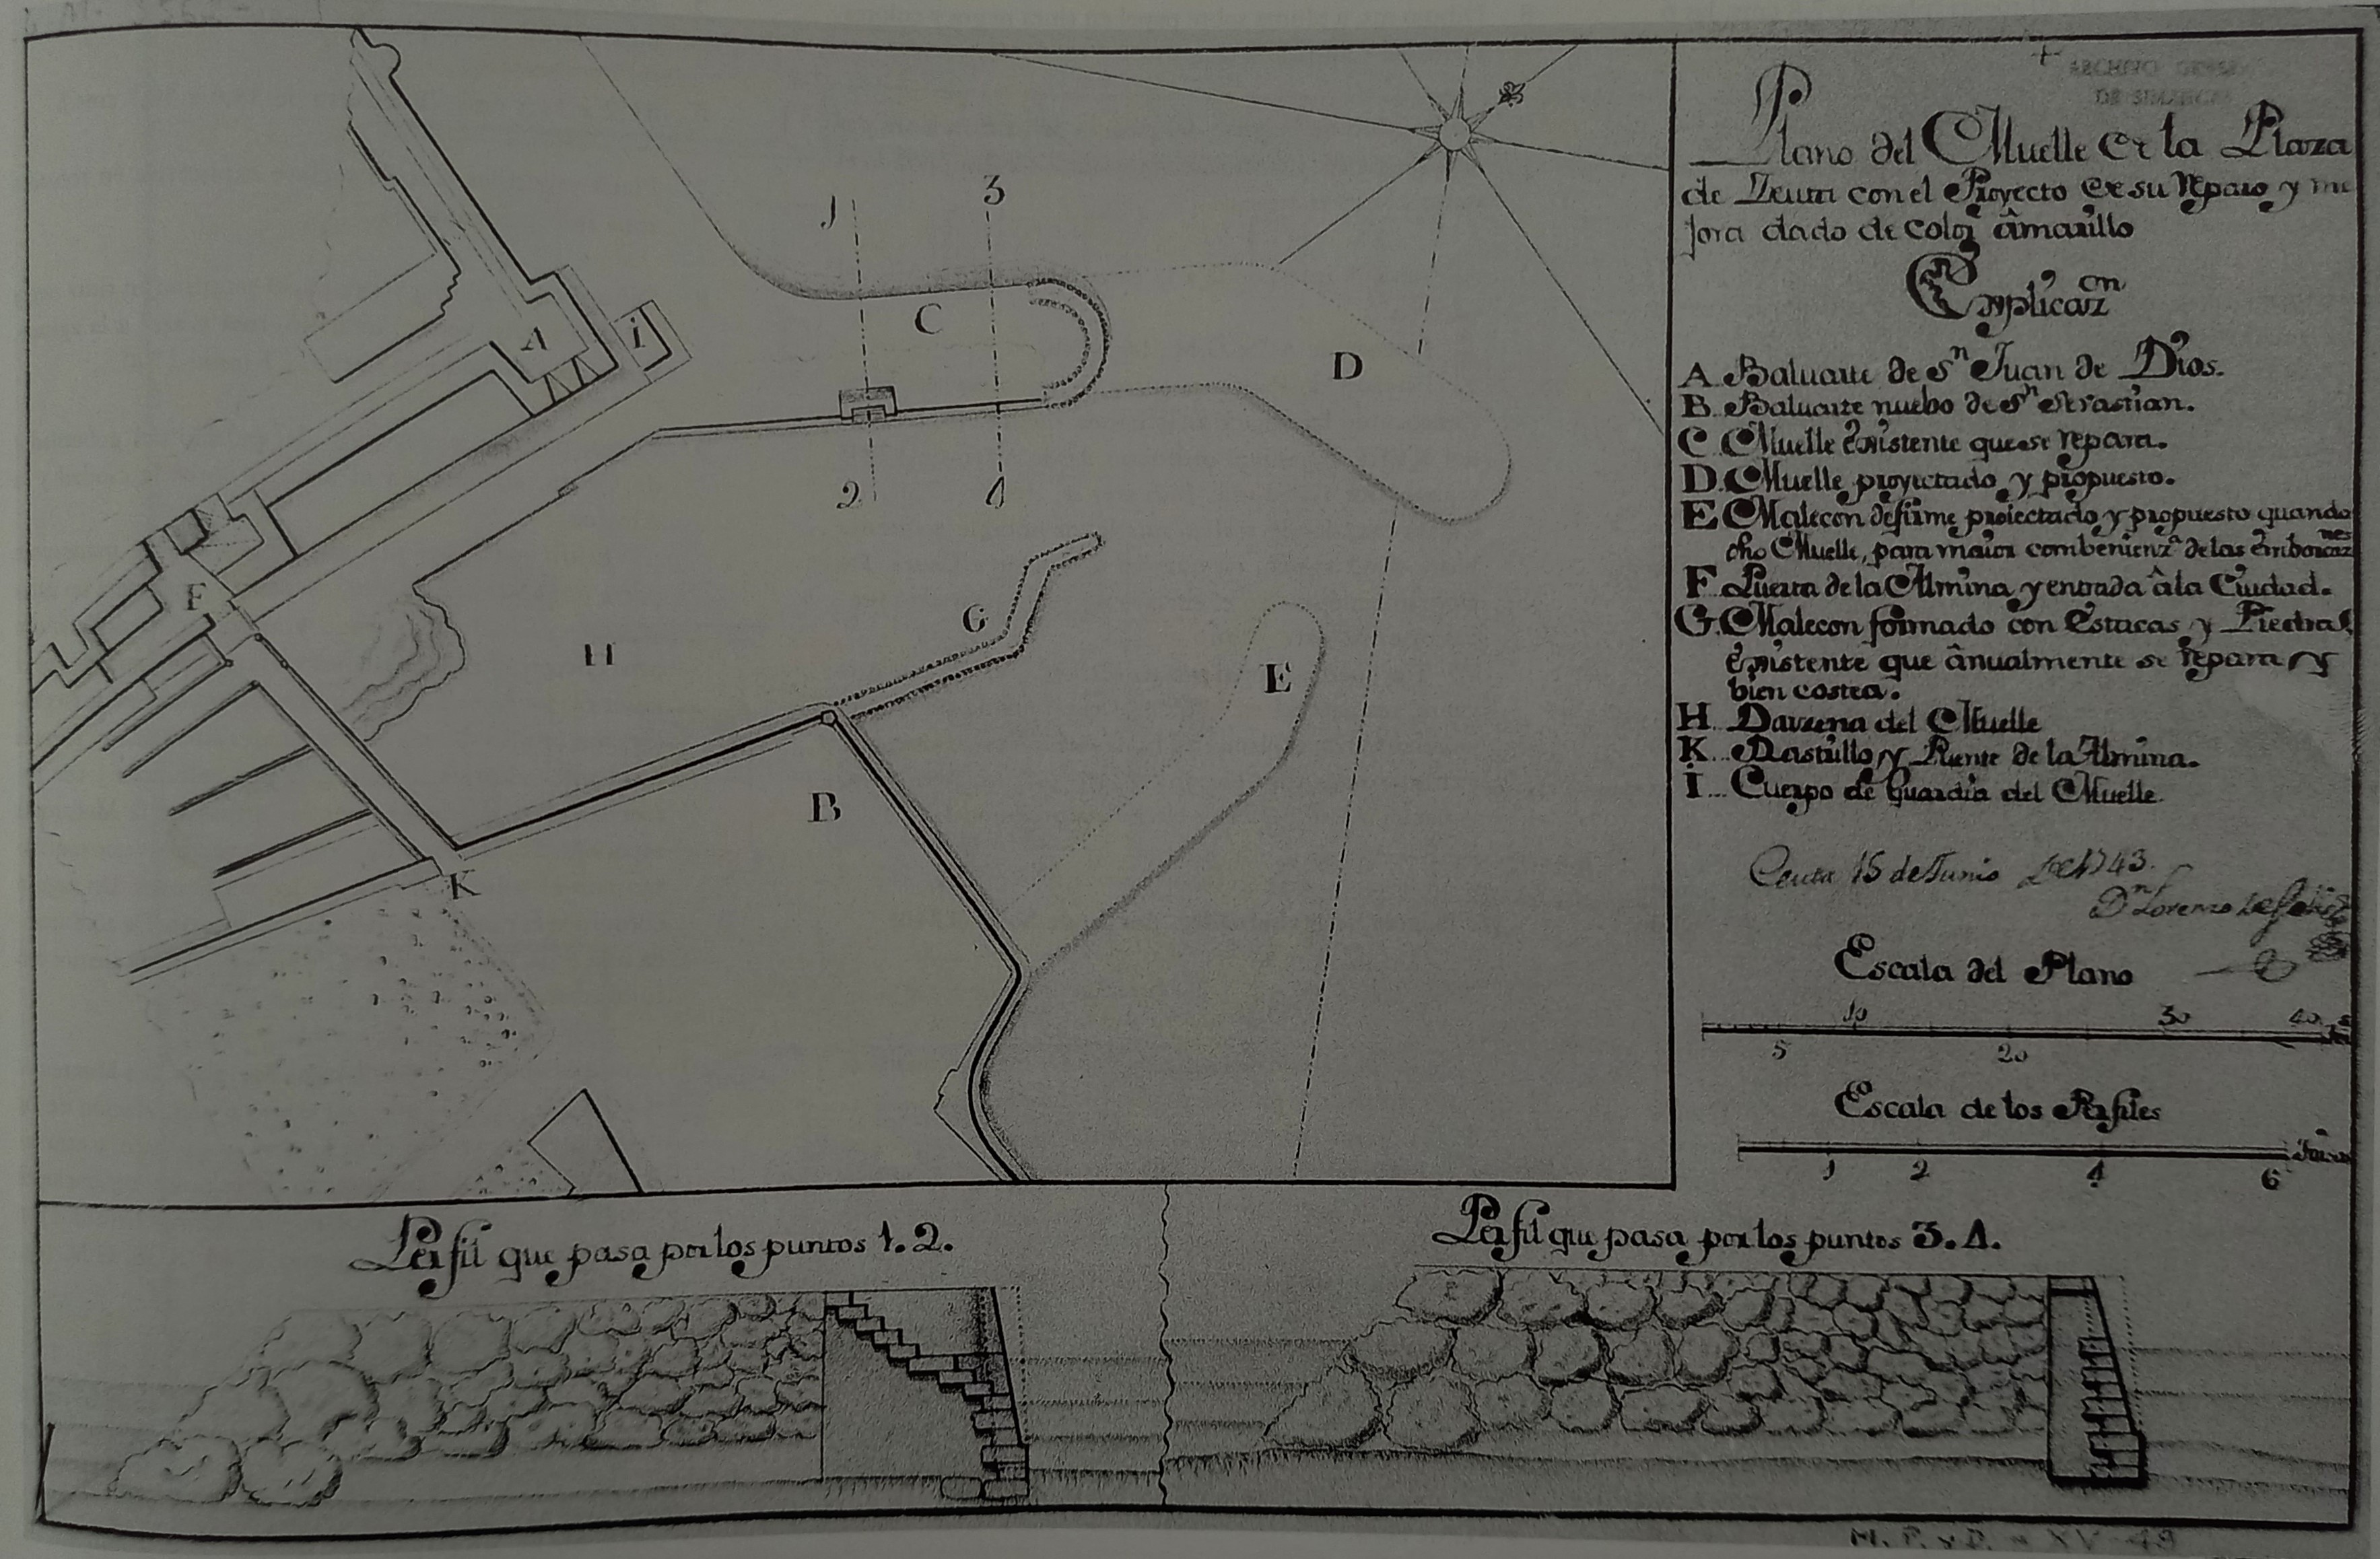 ARCHIVO GENERAL
DE SIMANCAS
Plano del Muelle de la Plaza
de Zeuta con el Proyecto de su Reparo y me
jora dado de color âmarillo
Explicaz.on
A. Baluarte de Sn Juan de Dios.
B. Baluarte nuebo de Sn Sevastian.
C. Muelle Existente que se repara.
D. Muelle proyectado y propuesto.
E Malecon de firme proiectado y propuesto quando
dho Muelle, para maior combenienza. de las embarcaz.nes
F. Puerta de la Almina y entrada â la Ciudad.
G. Malecon formado con Estacas y Piedras
Existente que ânualmente se repara y
bien costea.
H.. Darzena del Muelle
K... Rastrillo y Puente de la Almina.
i... Cuerpo de Guardia del Muelle.
Ceuta 15 de Junio de 1743.
Dn Lorenzo de
Escala del Plano
10 30 40
5 20
Escala de los Perfiles
1 2 4 6
1 3
C
D
A
i
2 4
F
G
H
E
B
K
Perfil que pasa por los puntos 1. 2.
Perfil que pasa por los puntos 3. 4.
M. P. y D. XV-49